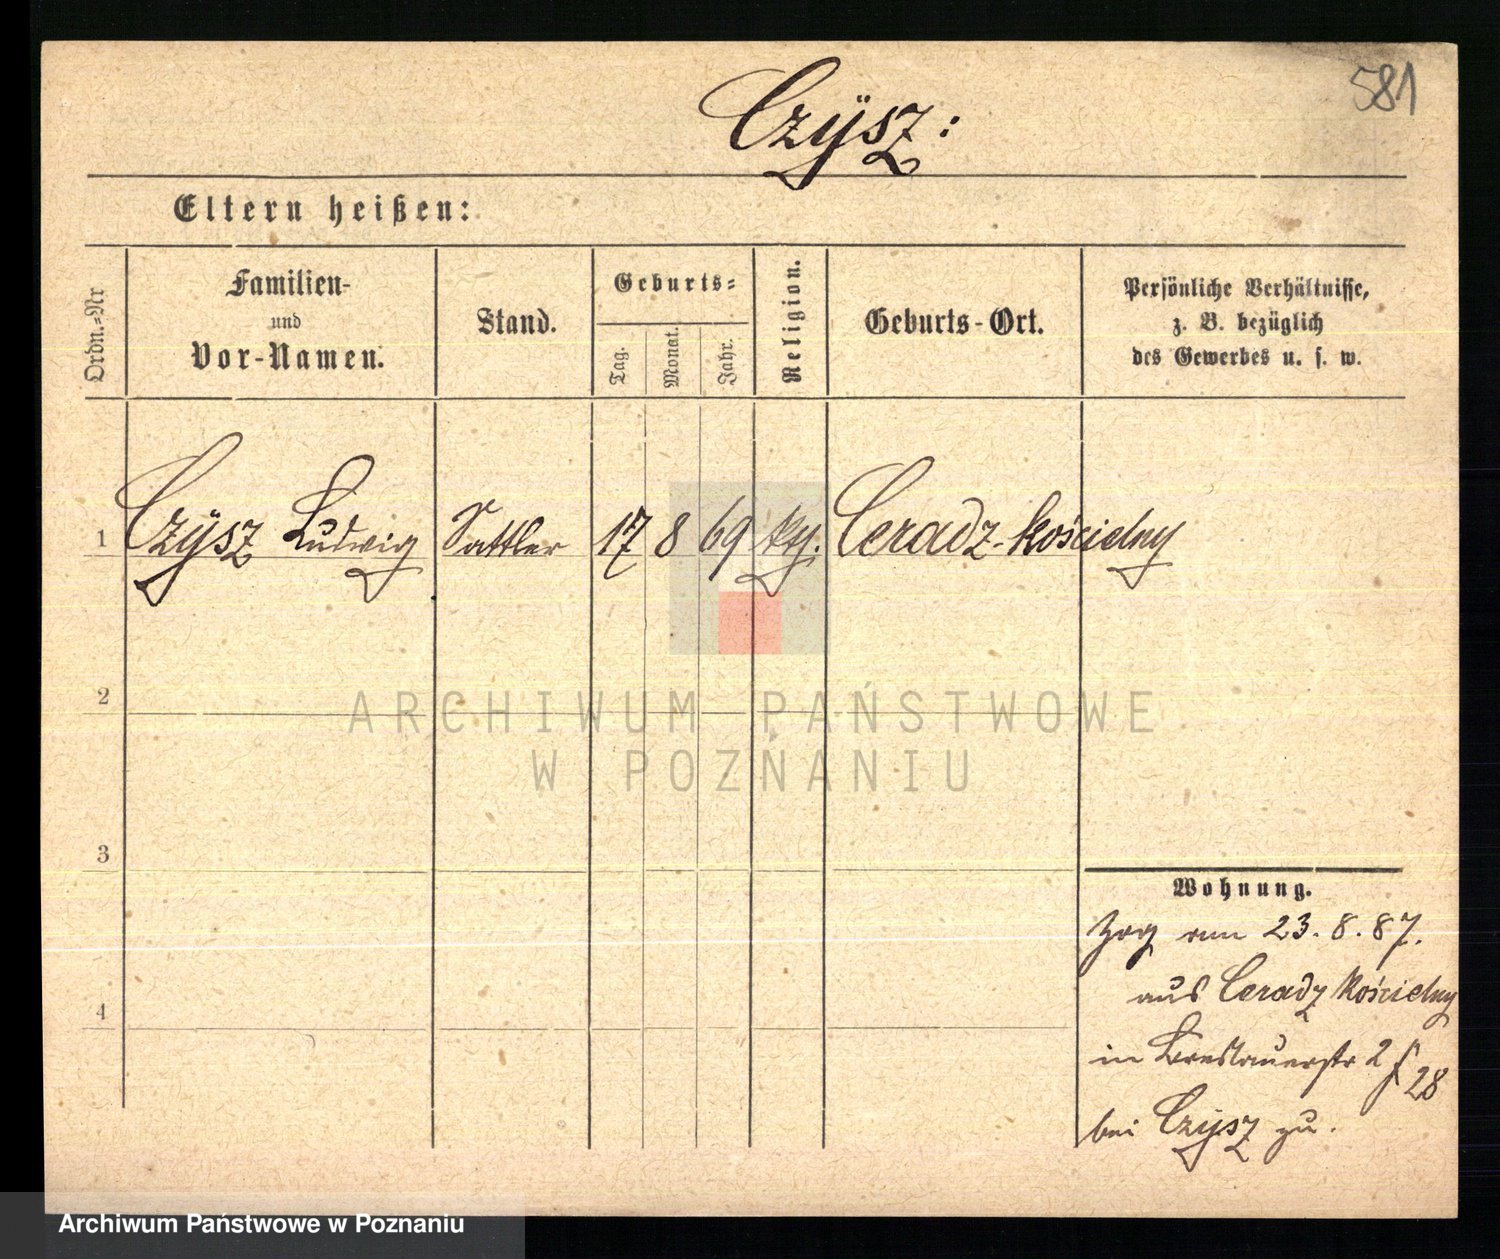 581
Czÿsz:
Eltern heißen:
Ordn.-Nr
Familien-
und
Vor-Namen.
Stand.
Geburts-
Tag.
Monat.
Jahr.
Religion.
Geburts-Ort.
Persönliche Verhältnisse,
z. B. bezüglich
des Gewerbes u. s. w.
1 Czÿsz Ludwig Sattler 17 8 69 Ceradz-Kościelny
2
3
4
Wohnung.
Zog am 23.8.87.
aus Ceradz Kościelny
in Breslauerstr 2
28
bei Czÿsz zu.
ARCHIWUM PAŃSTWOWE
W POZNANIU
Archiwum Państwowe w Poznaniu